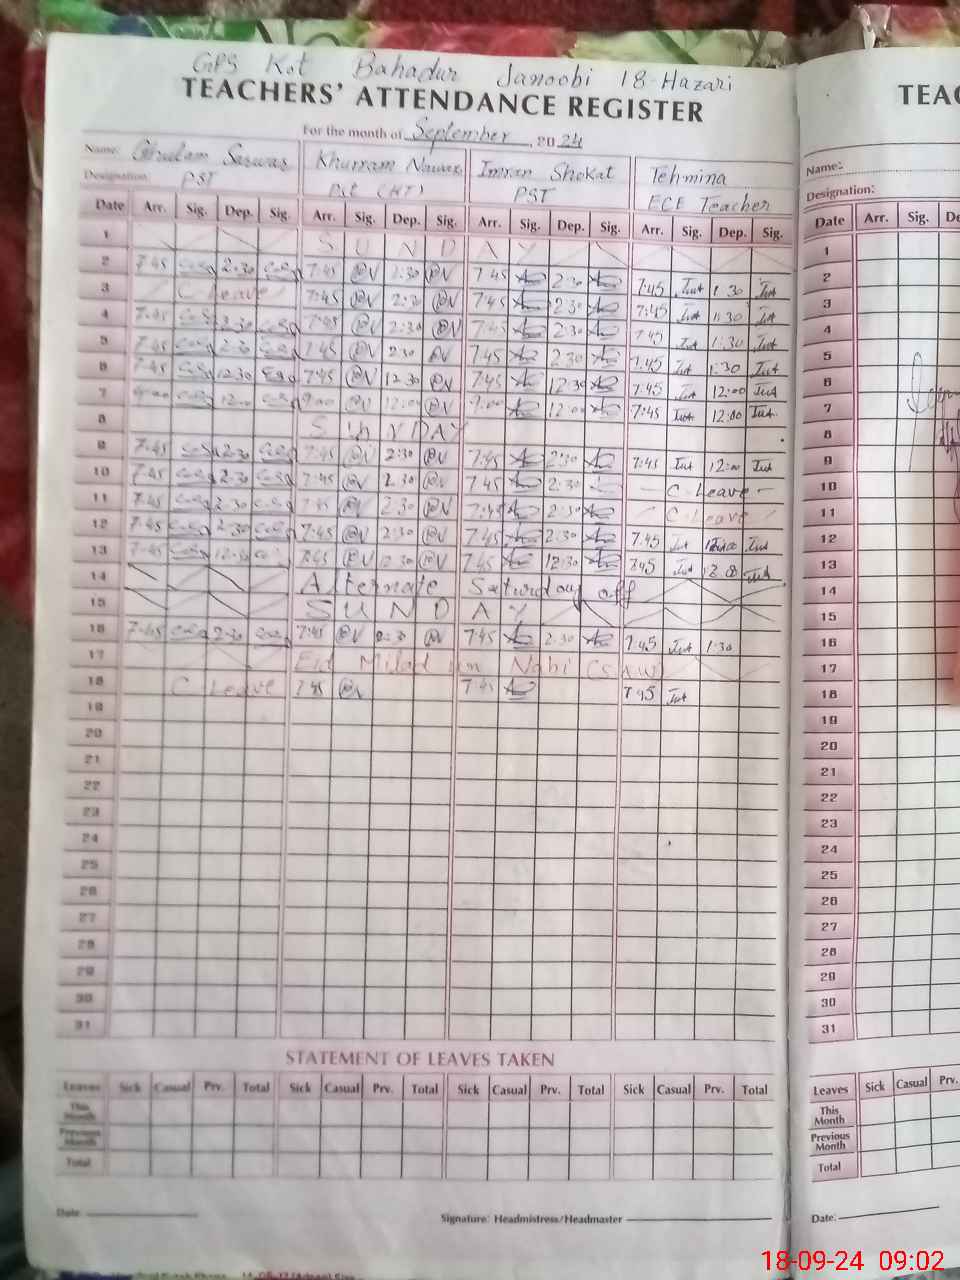 GPS Kot Bahadur Janoobi 18-Hazari
TEACHERS' ATTENDANCE REGISTER
For the month of September, 2024
Name: Ghulam Sarwar Khurram Nawaz Imran Shokat Tehmina
Designation: PST PST (HT) PST ECE Teacher
Date Arr. Sig. Dep. Sig. Arr. Sig. Dep. Sig. Arr. Sig. Dep. Sig. Arr. Sig. Dep. Sig.
1 SUNDAY
2 7:45 2:30 7:45 2:30 7:45 2:30 7:45 1:30
3 C Leave 7:45 2:30 7:45 2:30 7:45 1:30
4 7:45 2:30 7:45 2:30 7:45 2:30 7:45 1:30
5 7:45 2:30 7:45 2:30 7:45 2:30 7:45 1:30
6 7:45 12:30 7:45 12:30 7:45 12:30 7:45 12:00
7 9:00 12:00 9:00 12:00 9:00 12:00 7:45 12:00
8 SUNDAY
9 7:45 2:30 7:45 2:30 7:45 2:30 7:45 12:00
10 7:45 2:30 7:45 2:30 7:45 2:30 C. Leave
11 7:45 2:30 7:45 2:30 7:45 2:30 C. Leave
12 7:45 2:30 7:45 2:30 7:45 2:30 7:45
13 7:45 12:30 7:45 12:30 7:45 12:30 7:45
14 Alternate Saturday off
15 SUNDAY
16 7:45 2:30 7:45 2:30 7:45 2:30 7:45 1:30
17 Eid Milad un Nabi (S.A.W)
18 C Leave 7:45 7:45 7:45
19
20
21
22
23
24
25
26
27
28
29
30
31
STATEMENT OF LEAVES TAKEN
Leaves Sick Casual Prv. Total Sick Casual Prv. Total Sick Casual Prv. Total Sick Casual Prv. Total
This Month
Previous Month
Total
Date: Signature: Headmistress/Headmaster
TEAC
Name:
Designation:
Date Arr. Sig. De
1
2
3
4
5
6
7
8
9
10
11
12
13
14
15
16
17
18
19
20
21
22
23
24
25
26
27
28
29
30
31
Leaves Sick Casual Prv.
This Month
Previous Month
Total
Date:
18-09-24 09:02